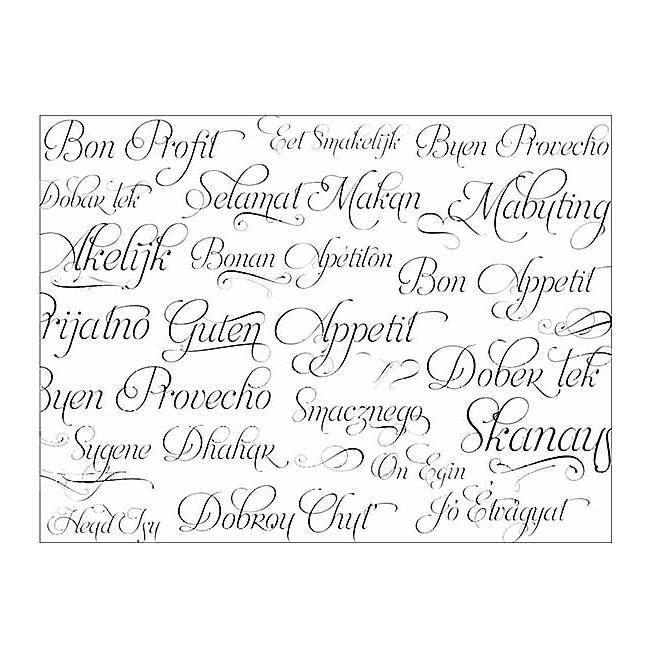 Bon Profit Eet Smakelijk Buen Provecho
Dobar tek Selamat Makan Mabuting
Akelijk Bonan Apétiton Bon Appetit
rijatno Guten Appetit
Buen Provecho Smacznego Dober tek
Sygene Dhahar On Egin Skanaus
Dobrou Chut' Jó Étvágyat